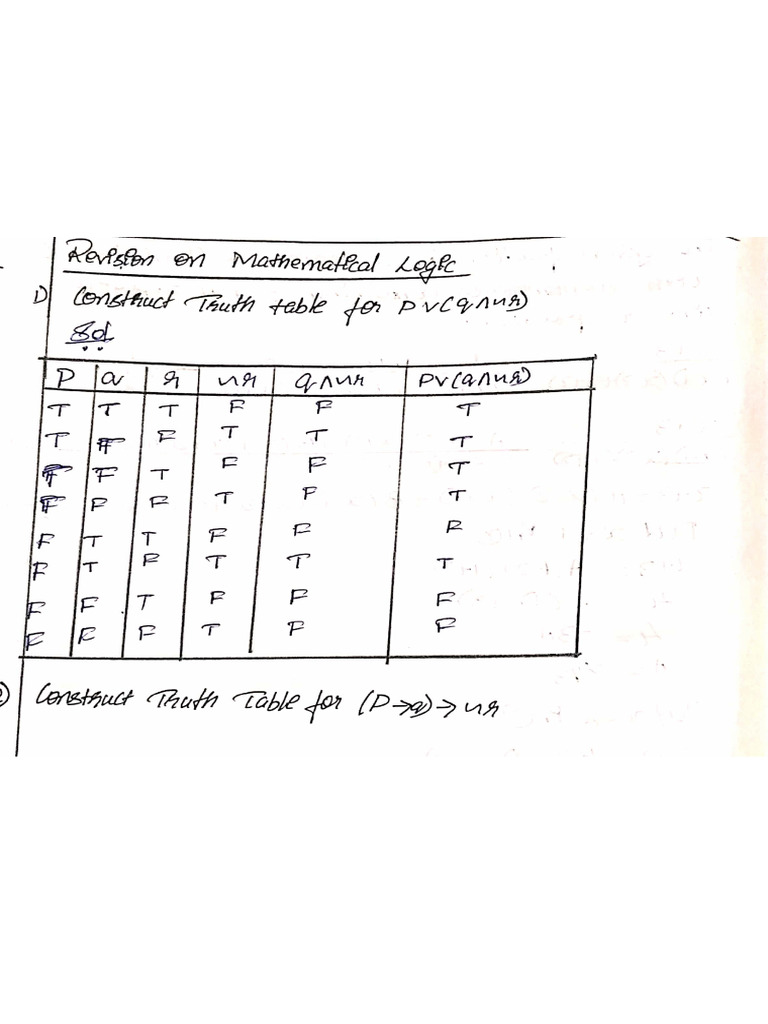 Revision on Mathematical Logic
1) Construct Truth table for p∨(q∧~r)
Sol
P q r ~r q∧~r p∨(q∧~r)
T T T F F T
T F F T T T
F F T F F T
F F F T F T
F T T F F F
F T F T T T
F F T F F F
F F F T F F
2) Construct Truth Table for (P→q)→~r